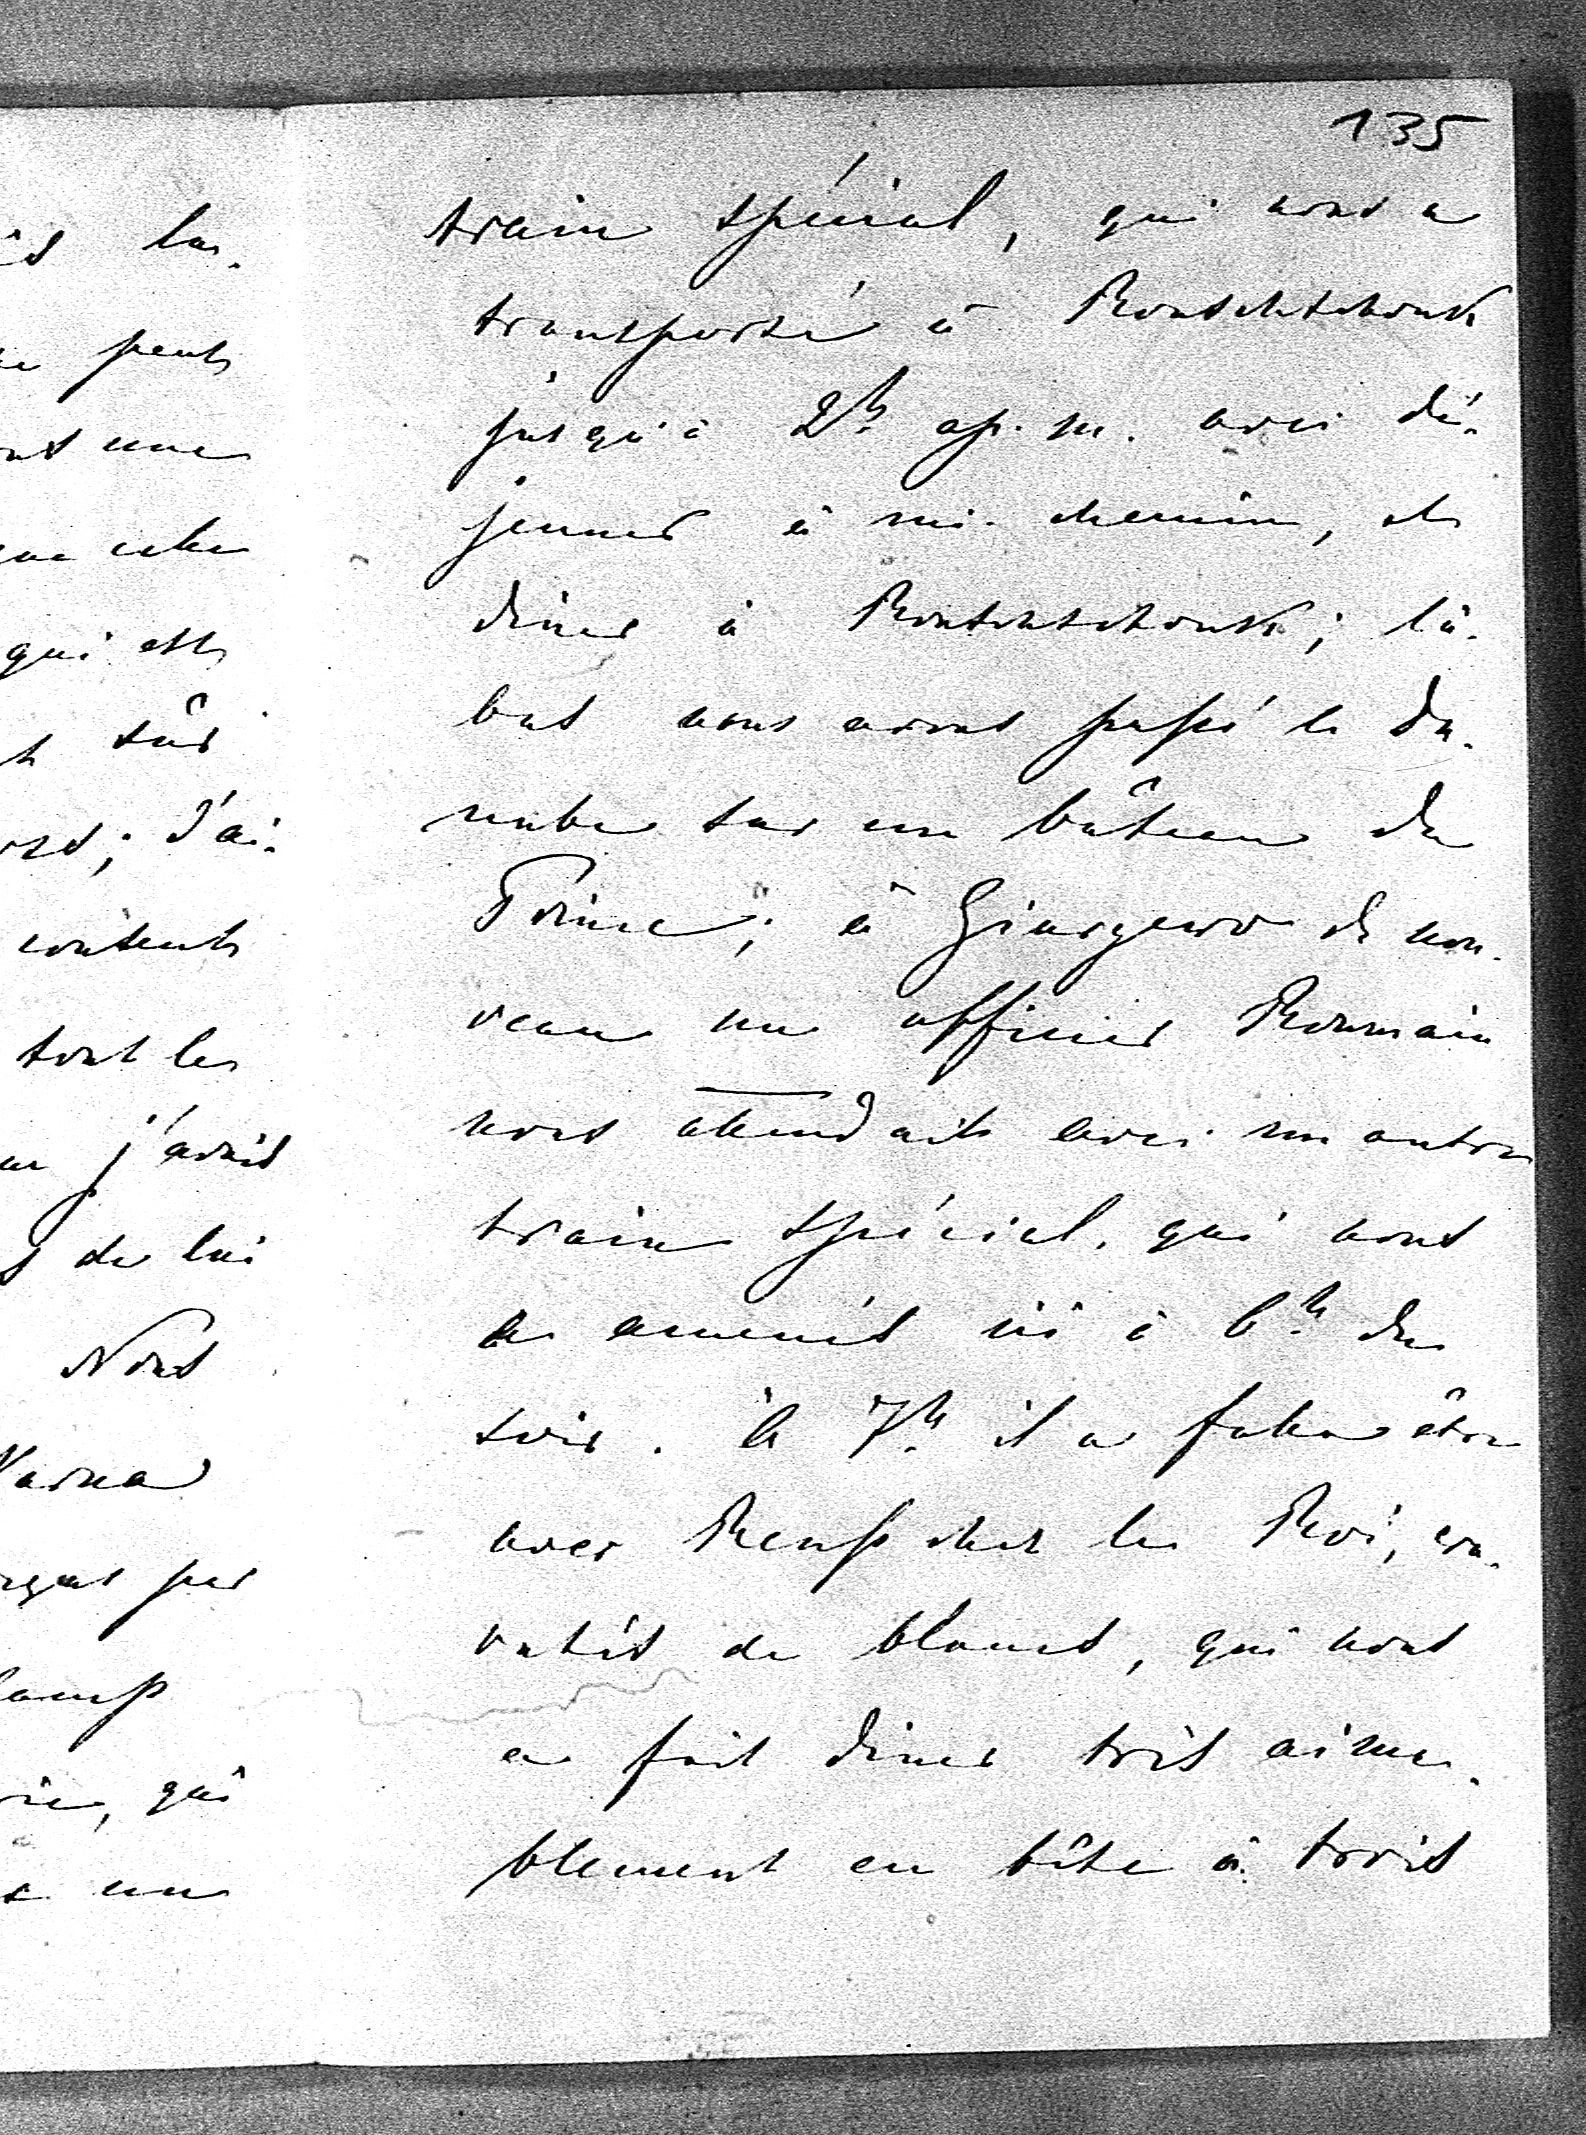 135
train spécial, qui nous a
transporté à Roustchtchouk
jusqu'à 2h ap. m. avec dé-
jeuner à mi-chemin, et
diner à Roustchtchouk; là-
bas nous avons passé le Da-
nube sur un bâteau du
Prince; à Giurgewo de nou-
veau un officier Roumain
nous attendait avec un autre
train spécial, qui nous
a amenés ici à 6h du
soir. À 7h il a fallu être
avec Reuss chez le Roi, cra-
vatés de blanc, qui nous
a fait diner très aima-
blement en tête à trois
peut
une
qui est
sûr
j'ai
content
sont les
j'avais
de lui
Nous
Varna
par
qui
un